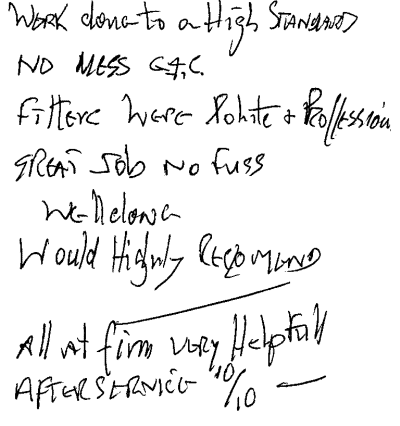 WORK done to a High STANDARD
NO MESS E.T.C.
Fitters were Polite + Proffession
GREAT Job No Fuss
Well done
Would Highly RECOMEND
All at firm very Helpfull
AFTER SERVICE 10/10 —